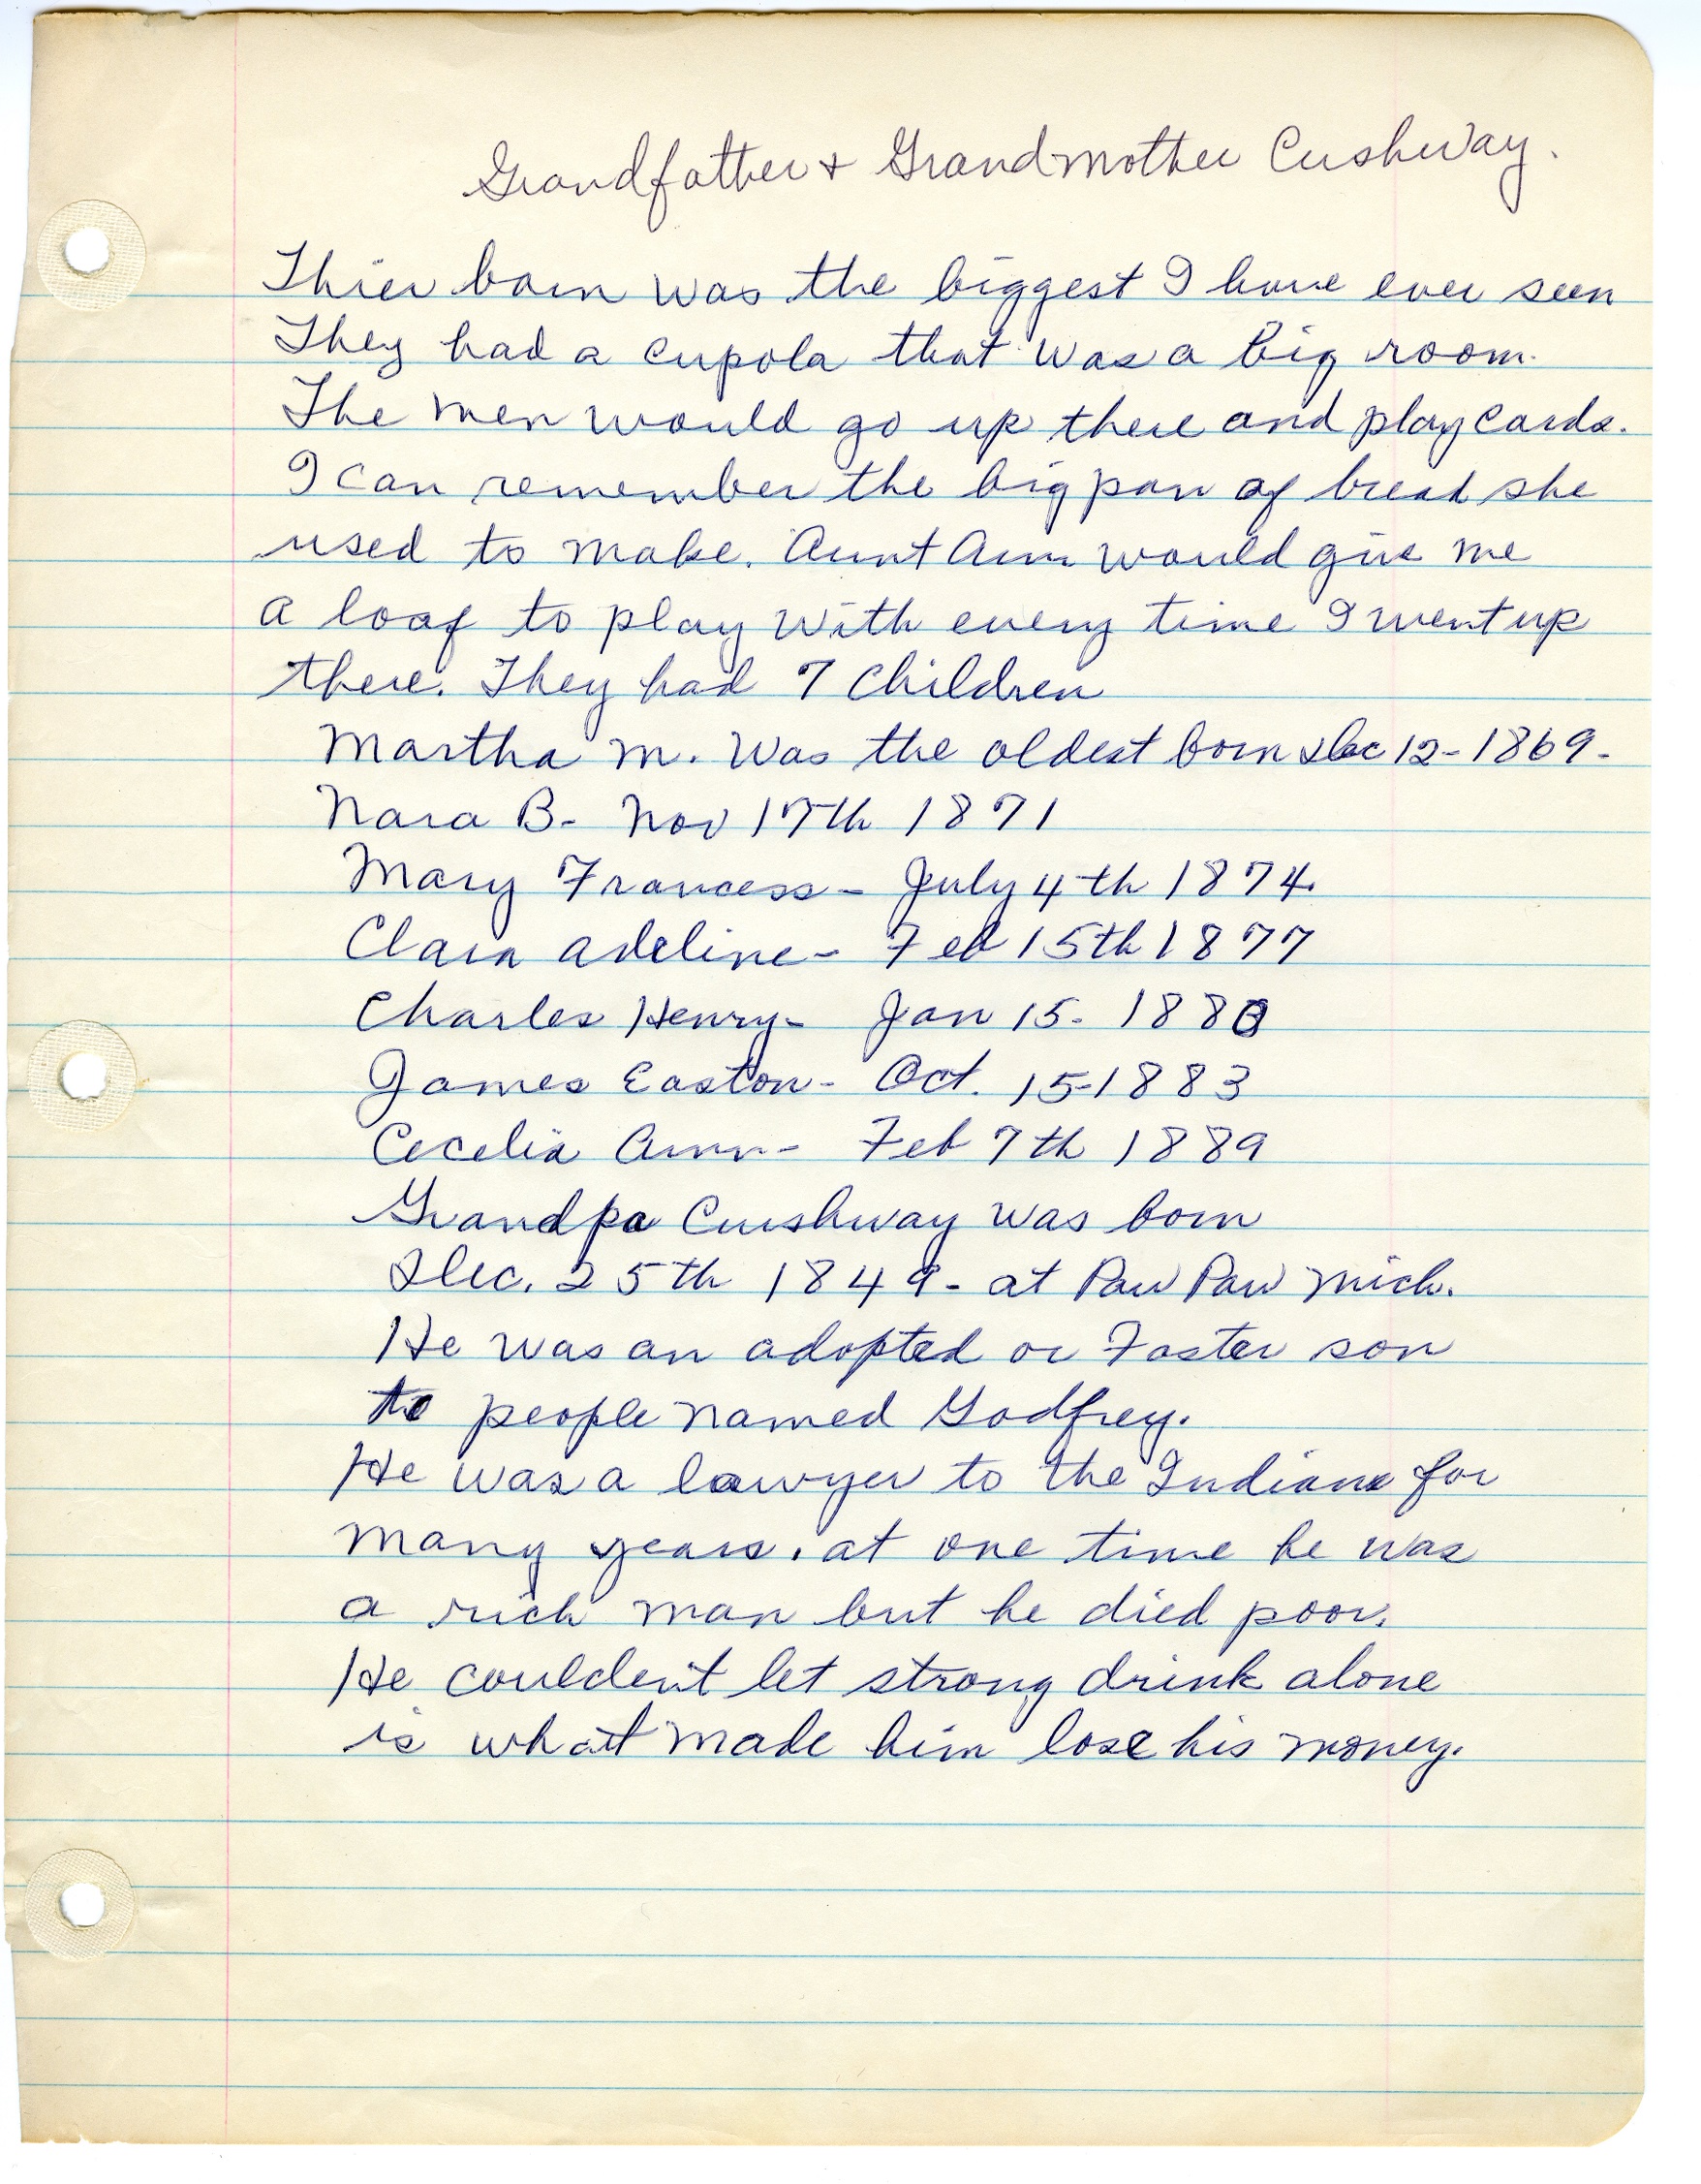 Grandfather + Grandmother Cushway.
Thier barn was the biggest I have ever seen
They had a cupola that was a big room.
The men would go up there and play cards.
I can remember the big pan of bread she
used to make. Aunt Ann would give me
a loaf to play with every time I went up
there. They had 7 children
Martha M. was the oldest born Dec 12-1869-
Nara B- Nov 17th 1871
Mary Francess - July 4th 1874.
Clara Adeline - Feb 15th 1877
Charles Henry - Jan 15- 1880
James Easton - Oct. 15-1883
Cecelia Ann - Feb 7th 1889
Grandpa Cushway was born
Dec. 25th 1849- at Paw Paw Mich.
He was an adopted or Foster son
to people named Godfrey.
He was a lawyer to the Indians for
many years. at one time he was
a rich man but he died poor.
He coulden't let strong drink alone
is what made him lose his money.